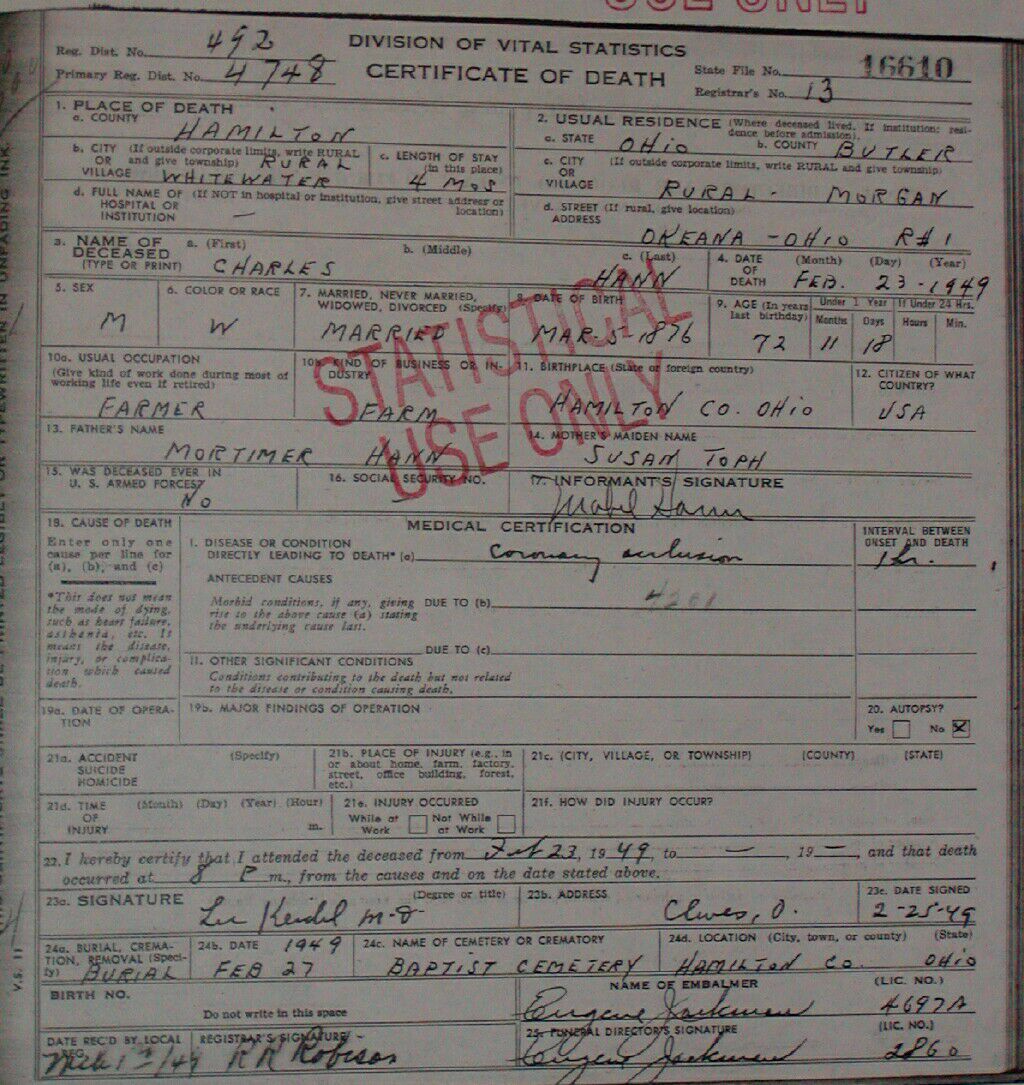 USE ONLY
Reg. Dist. No. 492
DIVISION OF VITAL STATISTICS
Primary Reg. Dist. No. 4748
CERTIFICATE OF DEATH
State File No. 16610
Registrar's No. 13
1. PLACE OF DEATH
a. COUNTY
HAMILTON
b. CITY (If outside corporate limits, write RURAL
OR and give township) RURAL
VILLAGE WHITEWATER
c. LENGTH OF STAY
(in this place)
4 MOS
d. FULL NAME OF (If NOT in hospital or institution, give street address or
HOSPITAL OR location)
INSTITUTION —
2. USUAL RESIDENCE (Where deceased lived. If institution: resi-
dence before admission).
a. STATE OHIO b. COUNTY BUTLER
c. CITY (If outside corporate limits, write RURAL and give township)
OR
VILLAGE RURAL - MORGAN
d. STREET (If rural, give location)
ADDRESS
OKEANA - OHIO R#1
3. NAME OF
DECEASED
(TYPE OR PRINT)
a. (First) b. (Middle) c. (Last)
CHARLES HANN
4. DATE (Month) (Day) (Year)
OF
DEATH FEB. 23 - 1949
5. SEX
M
6. COLOR OR RACE
W
7. MARRIED, NEVER MARRIED,
WIDOWED, DIVORCED (Specify)
MARRIED
8. DATE OF BIRTH
MAR. 5 - 1876
9. AGE (In years
last birthday)
72
Under 1 Year If Under 24 Hrs.
Months Days Hours Min.
11 18
10a. USUAL OCCUPATION
(Give kind of work done during most of
working life even if retired)
FARMER
10b. KIND OF BUSINESS OR IN-
DUSTRY
FARM
11. BIRTHPLACE (State or foreign country)
HAMILTON CO. OHIO
12. CITIZEN OF WHAT
COUNTRY?
USA
STATISTICAL
USE ONLY
13. FATHER'S NAME
MORTIMER HANN
14. MOTHER'S MAIDEN NAME
SUSAN TOPH
15. WAS DECEASED EVER IN
U. S. ARMED FORCES?
NO
16. SOCIAL SECURITY NO.
17. INFORMANT'S SIGNATURE
Mabel Hann
18. CAUSE OF DEATH
Enter only one
cause per line for
(a), (b), and (c)
*This does not mean
the mode of dying,
such as heart failure,
asthenia, etc. It
means the disease,
injury, or complica-
tion which caused
death.
MEDICAL CERTIFICATION
INTERVAL BETWEEN
ONSET AND DEATH
I. DISEASE OR CONDITION
DIRECTLY LEADING TO DEATH* (a) Coronary occlusion 1 hr.
ANTECEDENT CAUSES
Morbid conditions, if any, giving DUE TO (b) 4201
rise to the above cause (a) stating
the underlying cause last.
DUE TO (c)
II. OTHER SIGNIFICANT CONDITIONS
Conditions contributing to the death but not related
to the disease or condition causing death.
19a. DATE OF OPERA-
TION
19b. MAJOR FINDINGS OF OPERATION
20. AUTOPSY?
Yes No X
21a. ACCIDENT (Specify)
SUICIDE
HOMICIDE
21b. PLACE OF INJURY (e.g., in
or about home, farm, factory,
street, office building, forest,
etc.)
21c. (CITY, VILLAGE, OR TOWNSHIP) (COUNTY) (STATE)
21d. TIME (Month) (Day) (Year) (Hour)
OF
INJURY m.
21e. INJURY OCCURRED
While at Not While
Work at Work
21f. HOW DID INJURY OCCUR?
22. I hereby certify that I attended the deceased from Feb 23, 1949, to —, 19 —, and that death
occurred at 8 P m., from the causes and on the date stated above.
23a. SIGNATURE (Degree or title)
Keidel M-D
23b. ADDRESS
Cleves, O.
23c. DATE SIGNED
2-25-49
24a. BURIAL, CREMA-
TION, REMOVAL (Speci-
fy) BURIAL
24b. DATE 1949
FEB 27
24c. NAME OF CEMETERY OR CREMATORY
BAPTIST CEMETERY
24d. LOCATION (City, town, or county) (State)
HAMILTON CO. OHIO
BIRTH NO.
Do not write in this space
NAME OF EMBALMER (LIC. NO.)
Eugene Jackman 4697A
DATE REC'D BY LOCAL
REG.
REGISTRAR'S SIGNATURE
R R Robison
25. FUNERAL DIRECTOR'S SIGNATURE (LIC. NO.)
Eugene Jackman 2860
V.S. 11